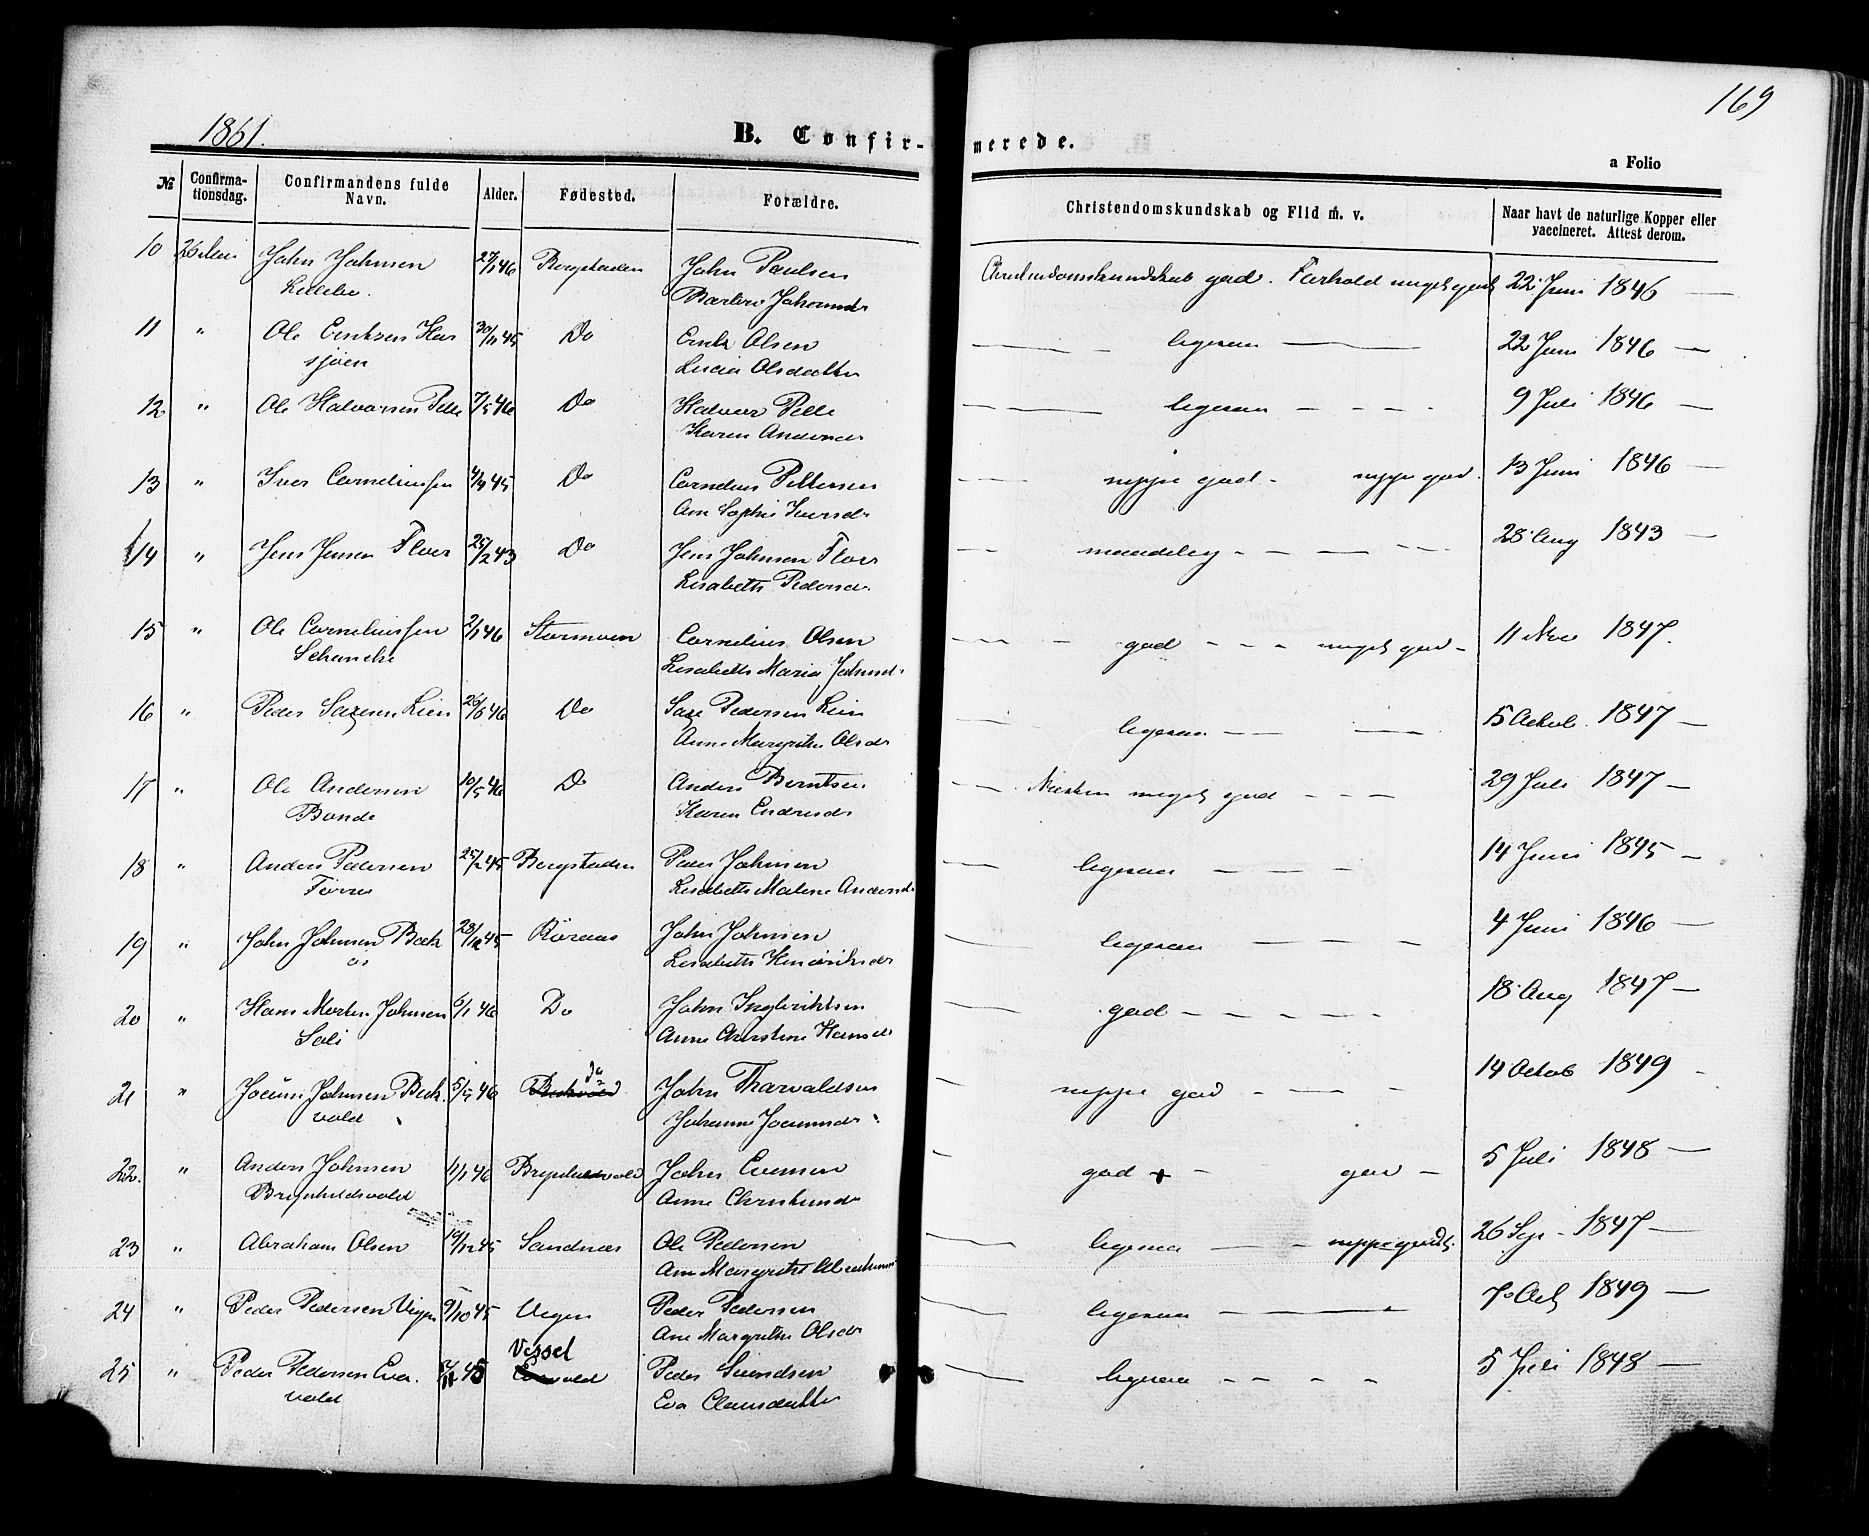 169
1861.
B. Confir-merede.
a Folio
№ Confirma-tionsdag. Confirmandens fulde Navn. Alder. Fødested. Forældre. Christendomskundskab og Flid m. v. Naar havt de naturlige Kopper eller vaccineret. Attest derom.
10 26 Mai John Johnsen 27/1 46 Bergstaden John Paulsen Christendomskundskab god. Forhold meget godt 22 Juni 1846 —
11 " Ole Eriksen Has 30/11 45 Do Erik Olsen — ligesaa — 22 Juni 1846 —
sjøen Lucia Olsdatter
12 " Ole Halvorsen Pelle 7/5 46 Do Halvor Pelle — ligesaa — 9 Juli 1846 —
Karen Andersd
13 " Iver Corneliussen 45 Do Cornelius Pettersen — neppe god - neppe god. 13 Juni 1846 —
Ane Sophie Iversd
14 " Jens Jensen Floer 25/2 43 Do Jens Johnsen Floer — maadelig — 28 Aug 1843 —
Lisabeth Pedersd
15 " Ole Corneliussen 2/1 46 Stormoen Cornelius Olsen — god - - - meget god - 11 Nov 1847.
Schancke Lisabeth Maria Johnsd
16 " Peder Saxesen Lien 46 Do Saxe Pedersen Lien ligesaa — 5 Octob. 1847 —
Anne Margrethe Olsd
17 " Ole Andersen 10/5 46 Do Anders Berntsen — Næsten meget god - - - 29 Juli 1847 —
Bonde Karen Endresd
18 " Anders Pedersen 25/2 45 Bergstaden Peder Johnsen — ligesaa - - - 14 Juni 1845 —
Tørres Lisabeth Malene Andersd
19 " John Johnsen Bak 28/12 45 Röraas John Johnsen — ligesaa — 4 Juni 1846 —
aas Lisabeth Hendriksd
20 " Hans Morten Johnsen 6/1 46 Do John Ingbriktsen — god - - - 18 Aug 1847 —
Soli Anne Christine Hansd
21 " Jocum Johnsen Bek 5/5 46 Do John Thorvaldsen — neppe god - 14 Octob 1849
vold Johanne Jocumsd
22. " Anders Johnsen 11/1 46 Brynhildsvold John Evensen god + - god - 5 Juli 1848 —
Brynhildsvold Anne Christensd
23 " Abraham Olsen 19/12 45 Sandnæs Ole Pedersen — ligesaa — - neppe godt. 26 Sep - 1847 —
Ane Margrethe
24 " Peder Pedersen Vingen 9/10 45 Vegen Peder Pedersen — ligesaa — 7 Oct 1849 —
Ane Margrethe Olsd
Vessel
25 " Peder Pedersen Eva 45 vold Peder Svendsen — ligesaa - - - 5 Juli 1848 —
vold Eva Clausdatter